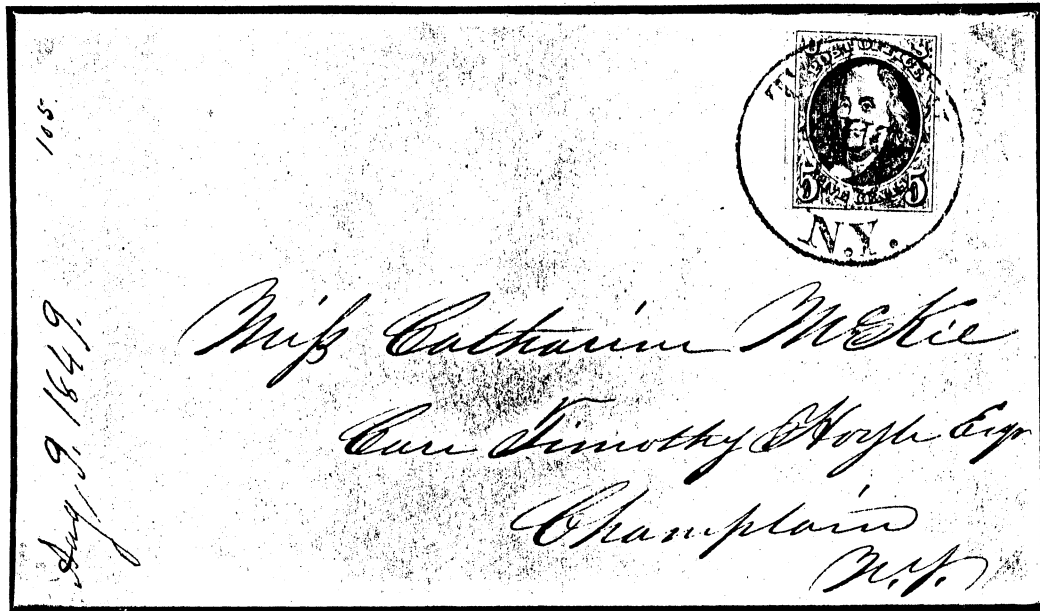 105.
Aug 9. 1849.
POST OFFICE
5 FIVE CENTS 5
N.Y.
Miss Catharine McKie
Care Timothy Hoyle Esqr
Champlain
N.Y.